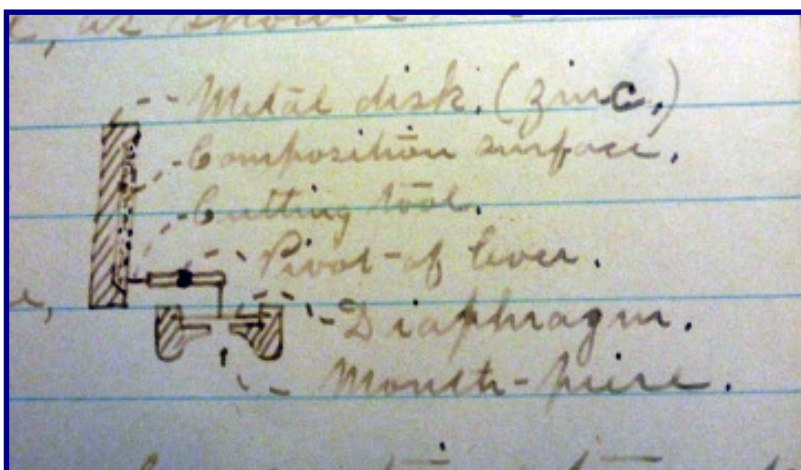 as shown
Metal disk. (zinc.)
Composition surface.
Cutting tool.
Pivot of lever.
Diaphragm.
Mouth-piece.